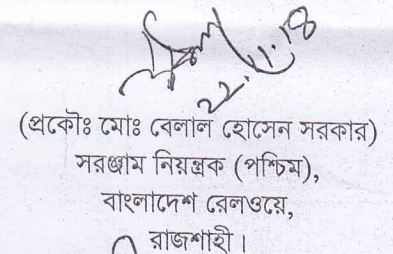 ২২.১১.১৮
(প্রকৌঃ মোঃ বেলাল হোসেন সরকার)
সরঞ্জাম নিয়ন্ত্রক (পশ্চিম),
বাংলাদেশ রেলওয়ে,
রাজশাহী।